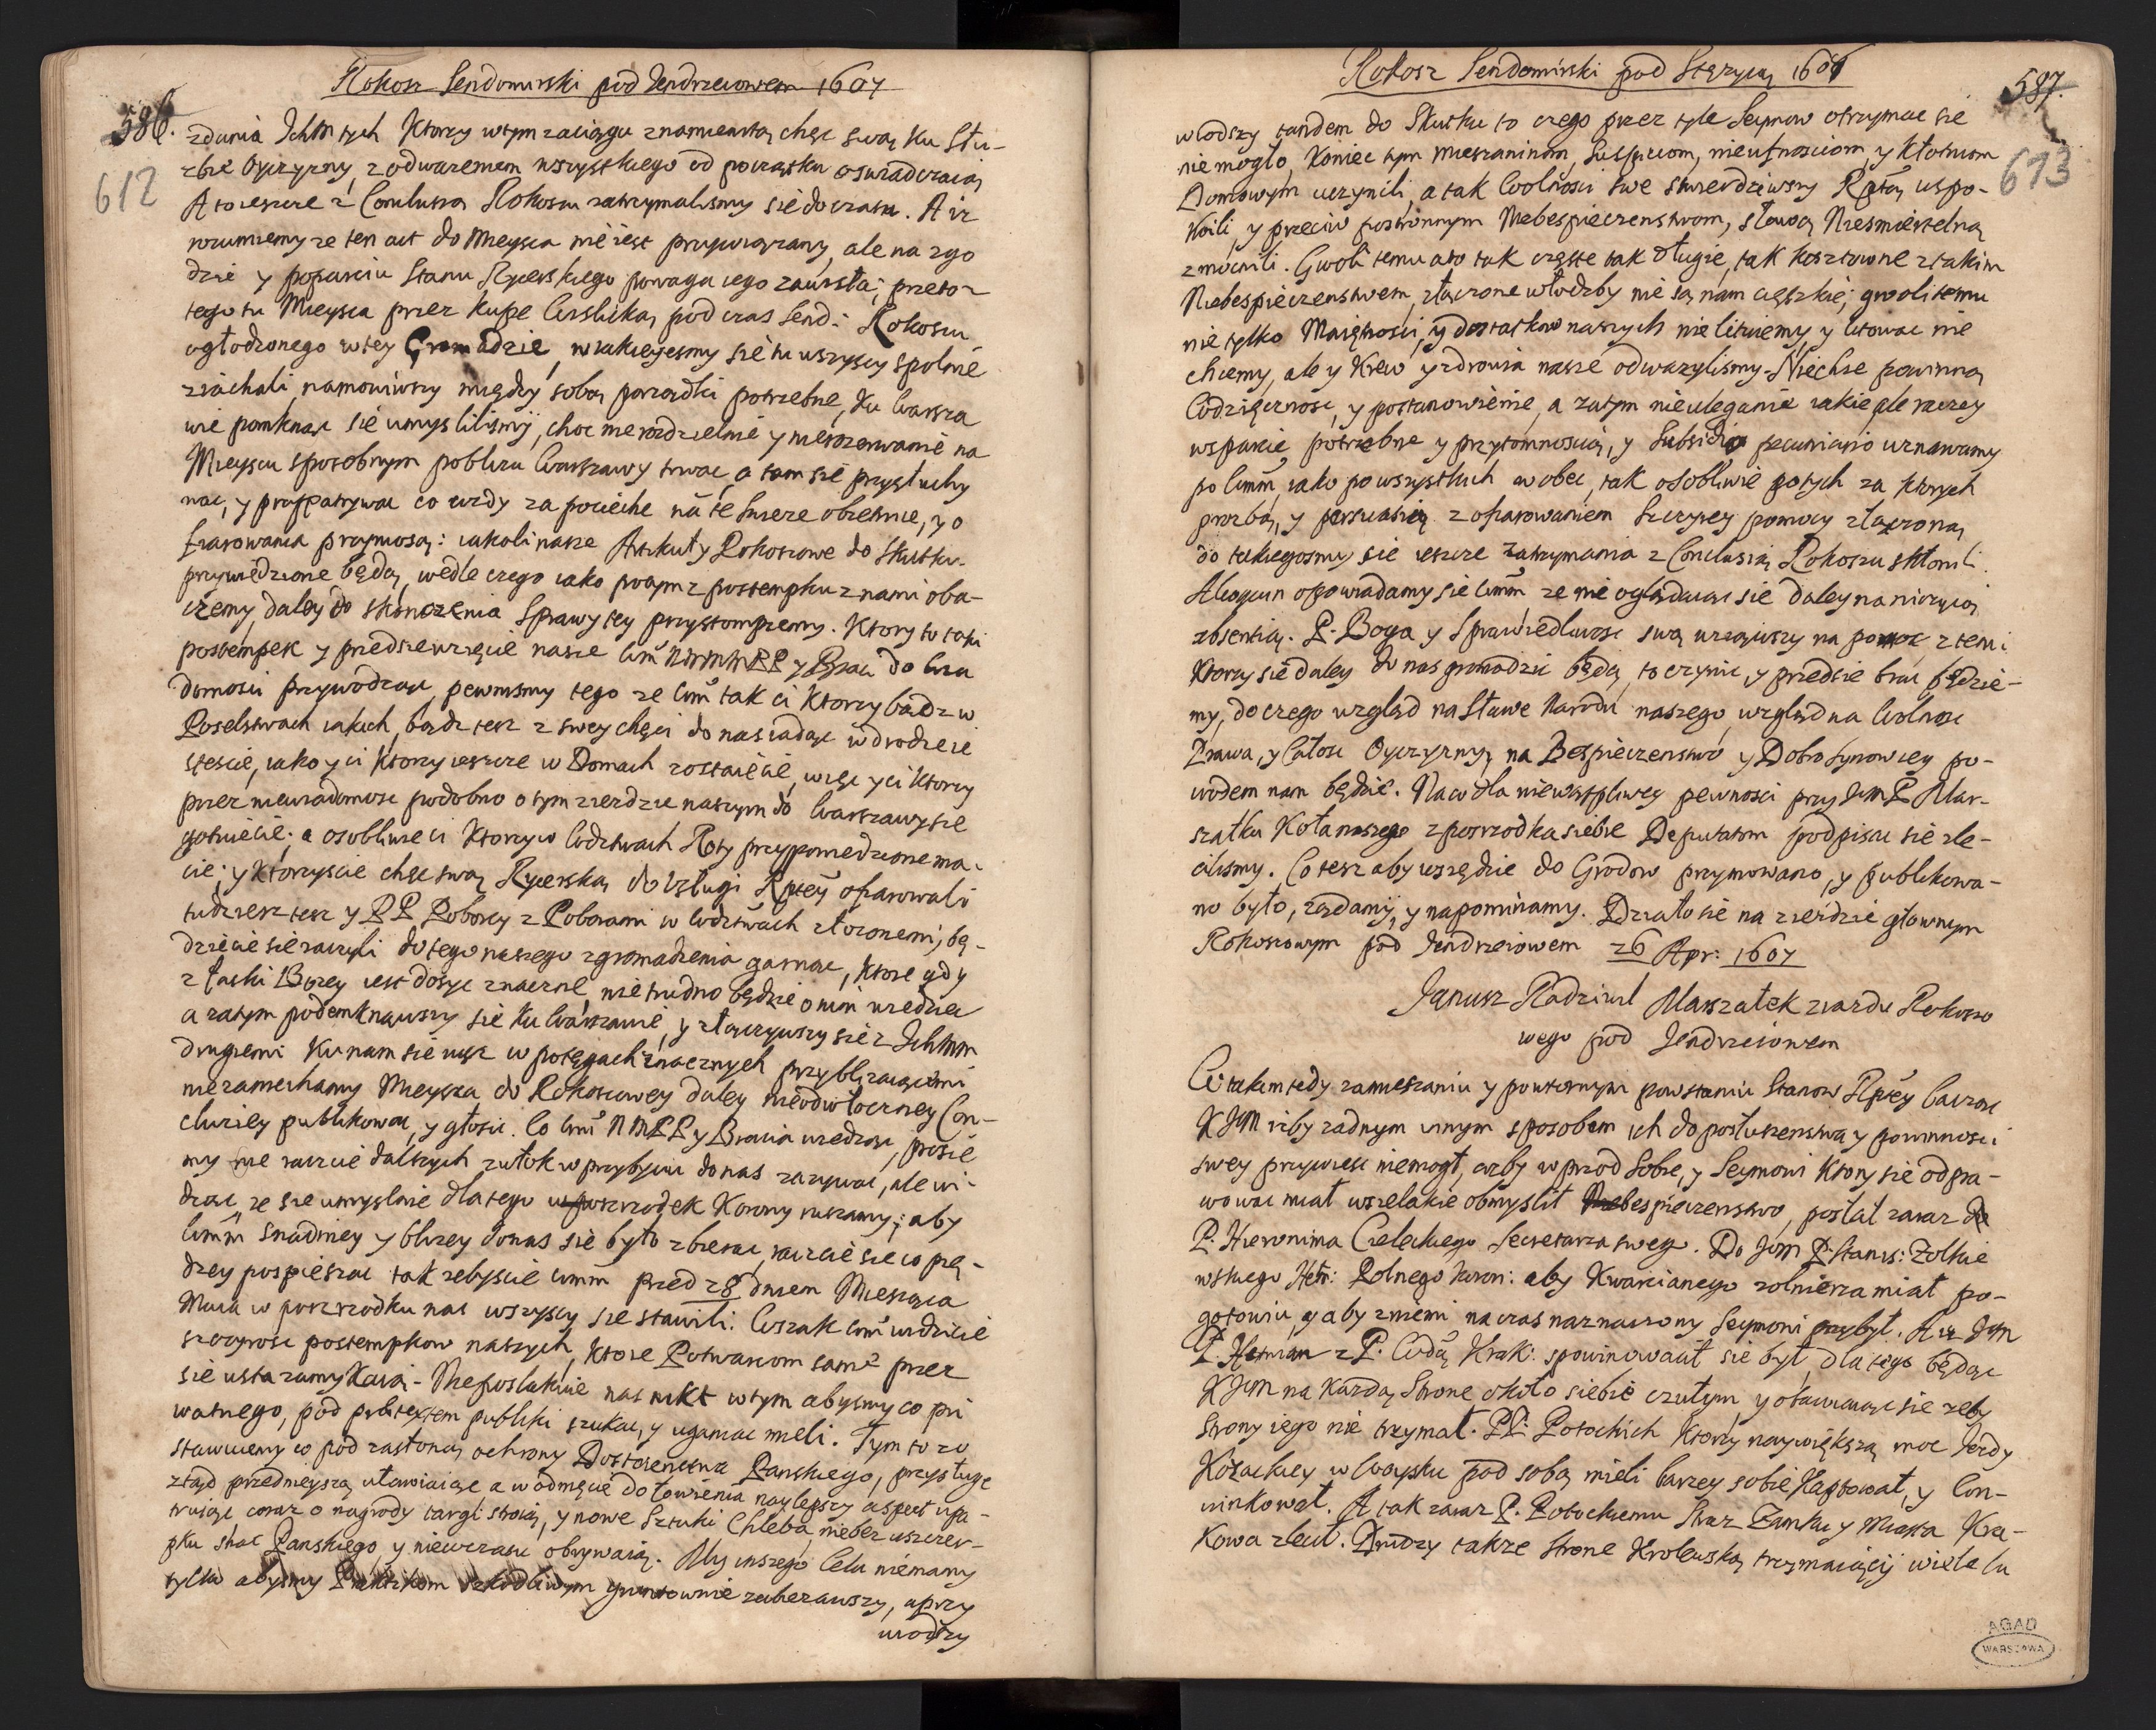 Rokosz Sendomirski pod Jendrzeiowem 1607
586.
612
zdania Ichm tych Ktorzy wtym zaciągu znamienitą chęc swą ku Słu-
zbie Oyczyzny, z odwazeniem wszystkiego od początku oswiadczaią
A to ieszcze z Conclusią Rokoszu zatrzymalismy sie do czasu. A iz
rozumiemy ze ten act do Mieysca nie iest przywiązany, ale na zgo
dzie y poparciu Stanu Rycerskiego powaga iego zawisła; przeto z
tego tu Mieysca przez kupę Wislicką pod czas Send: Rokoszu
ogłodzonego w tey Gromadzie, w iakieyesmy się tu wszyscy spolnie
ziachali, namowiwszy między sobą porządki potrzebne, ku Warsza
wie pomknąc sie umyslilismy, chcąc nierozdzielnie y nierozerwanie na
Mieyscu sposobnym poblizu Warszawy trwac, a tam sie przysłuchy
wac, y przypatrywac co wzdy za pociechę na te swieze obietnice, y o
fiarowania przyniosą: iakoli nasze Artykuły Rokoszowe do Skutku
przywiedzione będą, wedle czego iako potym z postempku z nami oba-
czemy, daley do skonczenia Sprawy tey przystompiemy. Ktory to taki
postempek y przedsiewzięcie nasze Wm MMPP y Braci do wia
domosci przywodząc, pewnismy tego ze Wm tak ci Ktorzy bądz w
Poselstwach iakich, bądz tesz z swey chęci do nas iadąc w drodze ie
stescie, iako y ci Ktorzy ieszcze w Domach zostaiecie, więc y ci Ktorzy
przez niewiadomosc podobno o tym ziezdzie naszym do Warszawy sie
gotuiecie, a osobliwie ci Ktorzy w Wodztwach Roty przypowiedzione ma-
cie, y Ktorzyscie chęc swą Rycerską do Usługi Rptey ofiarowali
tudziesz tesz y PP Poborcy z Poborami w Wodztwach złozonemi, bę-
dziecie sie raczyli do tego naszego zgromadzenia garnac, Ktore gdy
z łaski Bozey iest dosyc znaczne, nie trudno będzie o nim wiedziec
a zatym podemknąwszy się ku Warszawie, y złączywszy sie z Ichmm
drugiemi ku nam sie iusz w potęgach znacznych przyblizaiącemi
niezaniechamy Mieysca do Rokoszowey daley nieodwłoczney Con-
cluziey publikowac, y głosic. Co Wm MMPP y Bracia wiedząc, prosie
my nie raczcie dalszych zwłok w przybyciu do nas zazywac, ale wi-
dząc ze sie umyslnie dla tego w poszrodek Korony ruszamy; aby
Wmm snadniey y blizey do nas się było zbierac, raczcie sie co prę-
dzey pospieszac tak zebyscie Wmm przed 28 dniem Miesiąca
Maia w poszrzodku nas wszyscy sie stawili. Wszak Wm widzicie
szczyrosc postempkow naszych, Ktore Potwarcom same przez
się usta zamykaią. Nieposlakuie nas nikt w tym abysmy co pri
watnego, pod praetextem publiki szukac, y uganiac mieli. Tym to zo
stawuiemy co pod zasłoną ochrony Dostoienstwa Panskiego, przysługę
ztąd przednieyszą uławiaiąc a w odmęcie do łowienia naylepszy aspect upa-
truiąc coraz o nagrody targi stroią, y nowe Sztuki Chleba nie bez uszczer-
pku Skar Panskiego y niewczasu obrywaią. My inszego Celu niemamy
tylko abysmy Praktykom szkodliwym gruntownie zabiezawszy, a przy
wodszy
Rokosz Sendomirski pod Stęzycą 1606
587.
613
wiodszy tandem do Skutku to czego przez tyle Seymow otrzymac sie
nie mogło, Koniec tym mieszaninom, Suspiciom, nieufnosciom y Kłotniom
Domowym uczynili, a tak Wolnosci swe stwierdziwszy Rptą uspo-
koili, y przeciw postronnym Niebespieczenstwom, sławą Niesmiertelną
zmocnili. Gwoli temu ato tak częste tak długie, tak kosztowne z takim
Niebespieczenstwem, złączone włodzby nie są nam cięszkie, gwoli temu
nie tylko Maiętnosci, y dostatkow naszych nie lituiemy, y litowac nie
chcemy, ale y Krew y zdrowia nasze odwazylismy. Niechse powinną
Wdzięcznosc, y postanowienie, a zatym nieuleganie iakie ale raczey
wsparcie potrzebne y przytomnoscią, y Subsidio pecuniario uznawamy
po Wmm, iako po wszystkich wobec, tak osobliwie po tych za Ktorych
prozbą, y perswasią z ofiarowaniem Szczyrey pomocy złączoną
do takiegosmy sie ieszcze zatrzymania z Conclusią Rokoszu skłonili.
Alioquin opowiadamy sie Wmm ze nie oglądaiąc sie daley na niczyią
absentią. P. Boga y Sprawiedliwosc swą wziąwszy na pomoc z temi
Ktorzy sie daley do nas gromadzic będą, to czynic, y przedsie brac będzie-
my, do czego wzgląd na Sławe Narodu naszego, wzgląd na Wolnosc
Prawa, y Całosc Oyczyzny, na Bespieczenstwo y Dobro Synow iey po-
wodem nam będzie. Na co dla niewątpliwey pewnosci przy JmP Mar-
szałku Koła naszego z posrzodka siebie Deputatom podpisac sie zle-
cilismy. Co tesz aby wszędzie do Grodow przymowano, y publikowa-
no było, ządamy, y napominamy. Działo sie na ziezdzie głownym
Rokoszowym pod Jendrzeiowem 26 Apr: 1607
Janusz Radziwił Marszałek ziazdu Rokoszo
wego pod Jendrzeiowem
W takiem tedy zamieszaniu y powtornym powstaniu Stanow Rptey bacząc
KJM izby zadnym innym sposobem ich do posłuszenstwa y powinnosci
swey przywiesc niemogł, azby w przod Sobie, y Seymowi Ktory się odpra-
wowac miał wszelakie obmyslił bespieczenstwo, posłał zaraz do
P. Hieronima Cieleckiego Secretarza swego. Do Jmm P. Stanis: Zołkie
wskiego Hetm: Polnego koron: aby Kwarcianego zolnierza miał po-
gotowiu, y aby z niemi na czas naznaczony Seymowi przybył. A iz Jm
P. Hetman z P. Wdą Krak: spowinowacił sie był, dla tego będąc
KJM na Kazdą Strone około siebie czułym, y obawiaiąc sie zeby
Strony iego nie trzymał. PP. Potockich Ktorzy naywiększą moc Jezdy
Kozackiey w Woysku pod sobą mieli barzey sobie Kaptował, y Con-
winkował. A tak zaraz P. Potockiemu Straz Zamku y Miasta Kra-
kowa zlecił. Drudzy takze Strone Krolewską trzymaiący wiele lu
AGAD
WARSZAWA